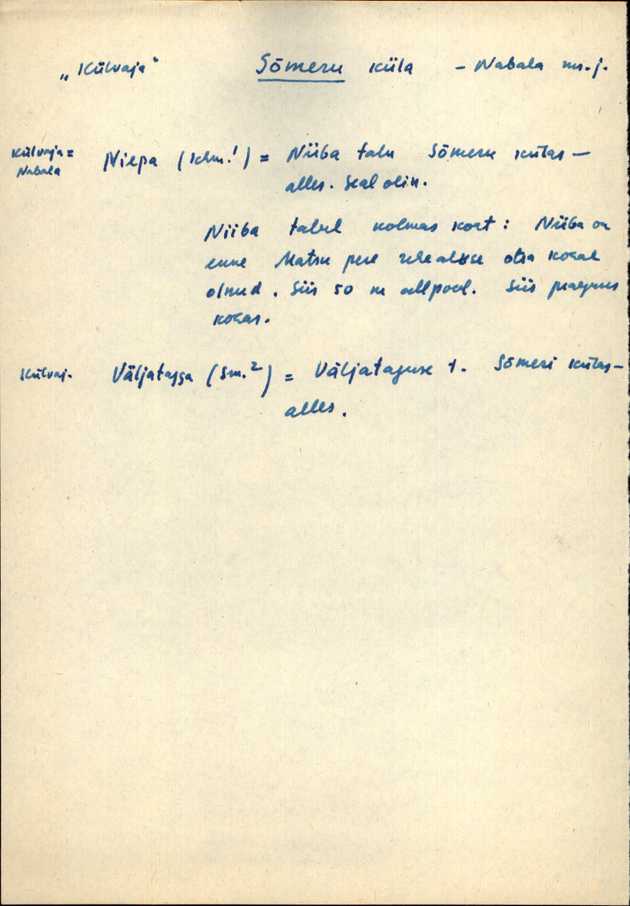 „Külvaja" Sõmeru küla – Nabala m.-j.
Külvaja = Nabala
Niepa (khm.!) = Niiba talu Sõmeru külas –
alles. Seal olin.
Niiba talul kolmas koht: Niiba on
enne Matsu pere rehealuse otsa kohal
olnud. Siis 50 m allpool. Siis praeguses
kohas.
Külvaj. Väljatagga (Sm.²) = Väljataguse t. Sõmeri külas –
alles.